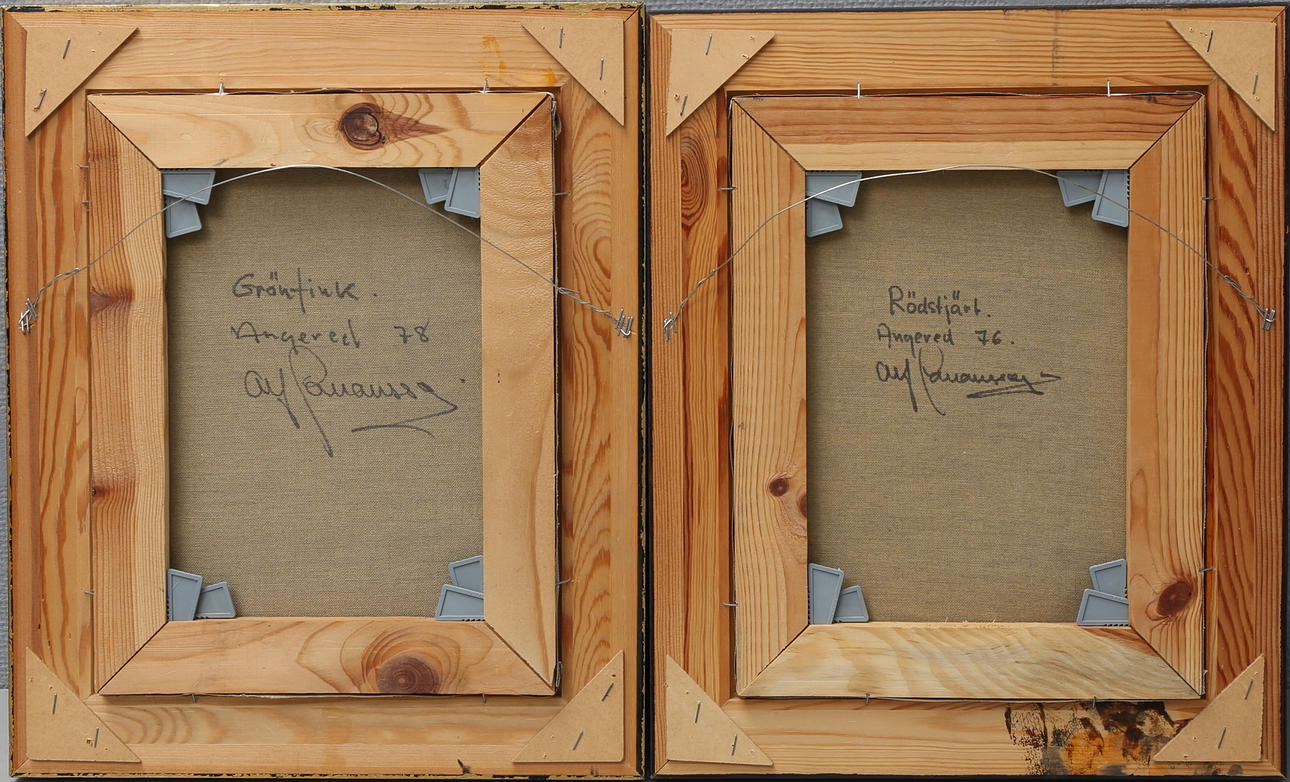 Grönfink.
Angered 78
Alf
Rödstjärt.
Angered 76.
Alf